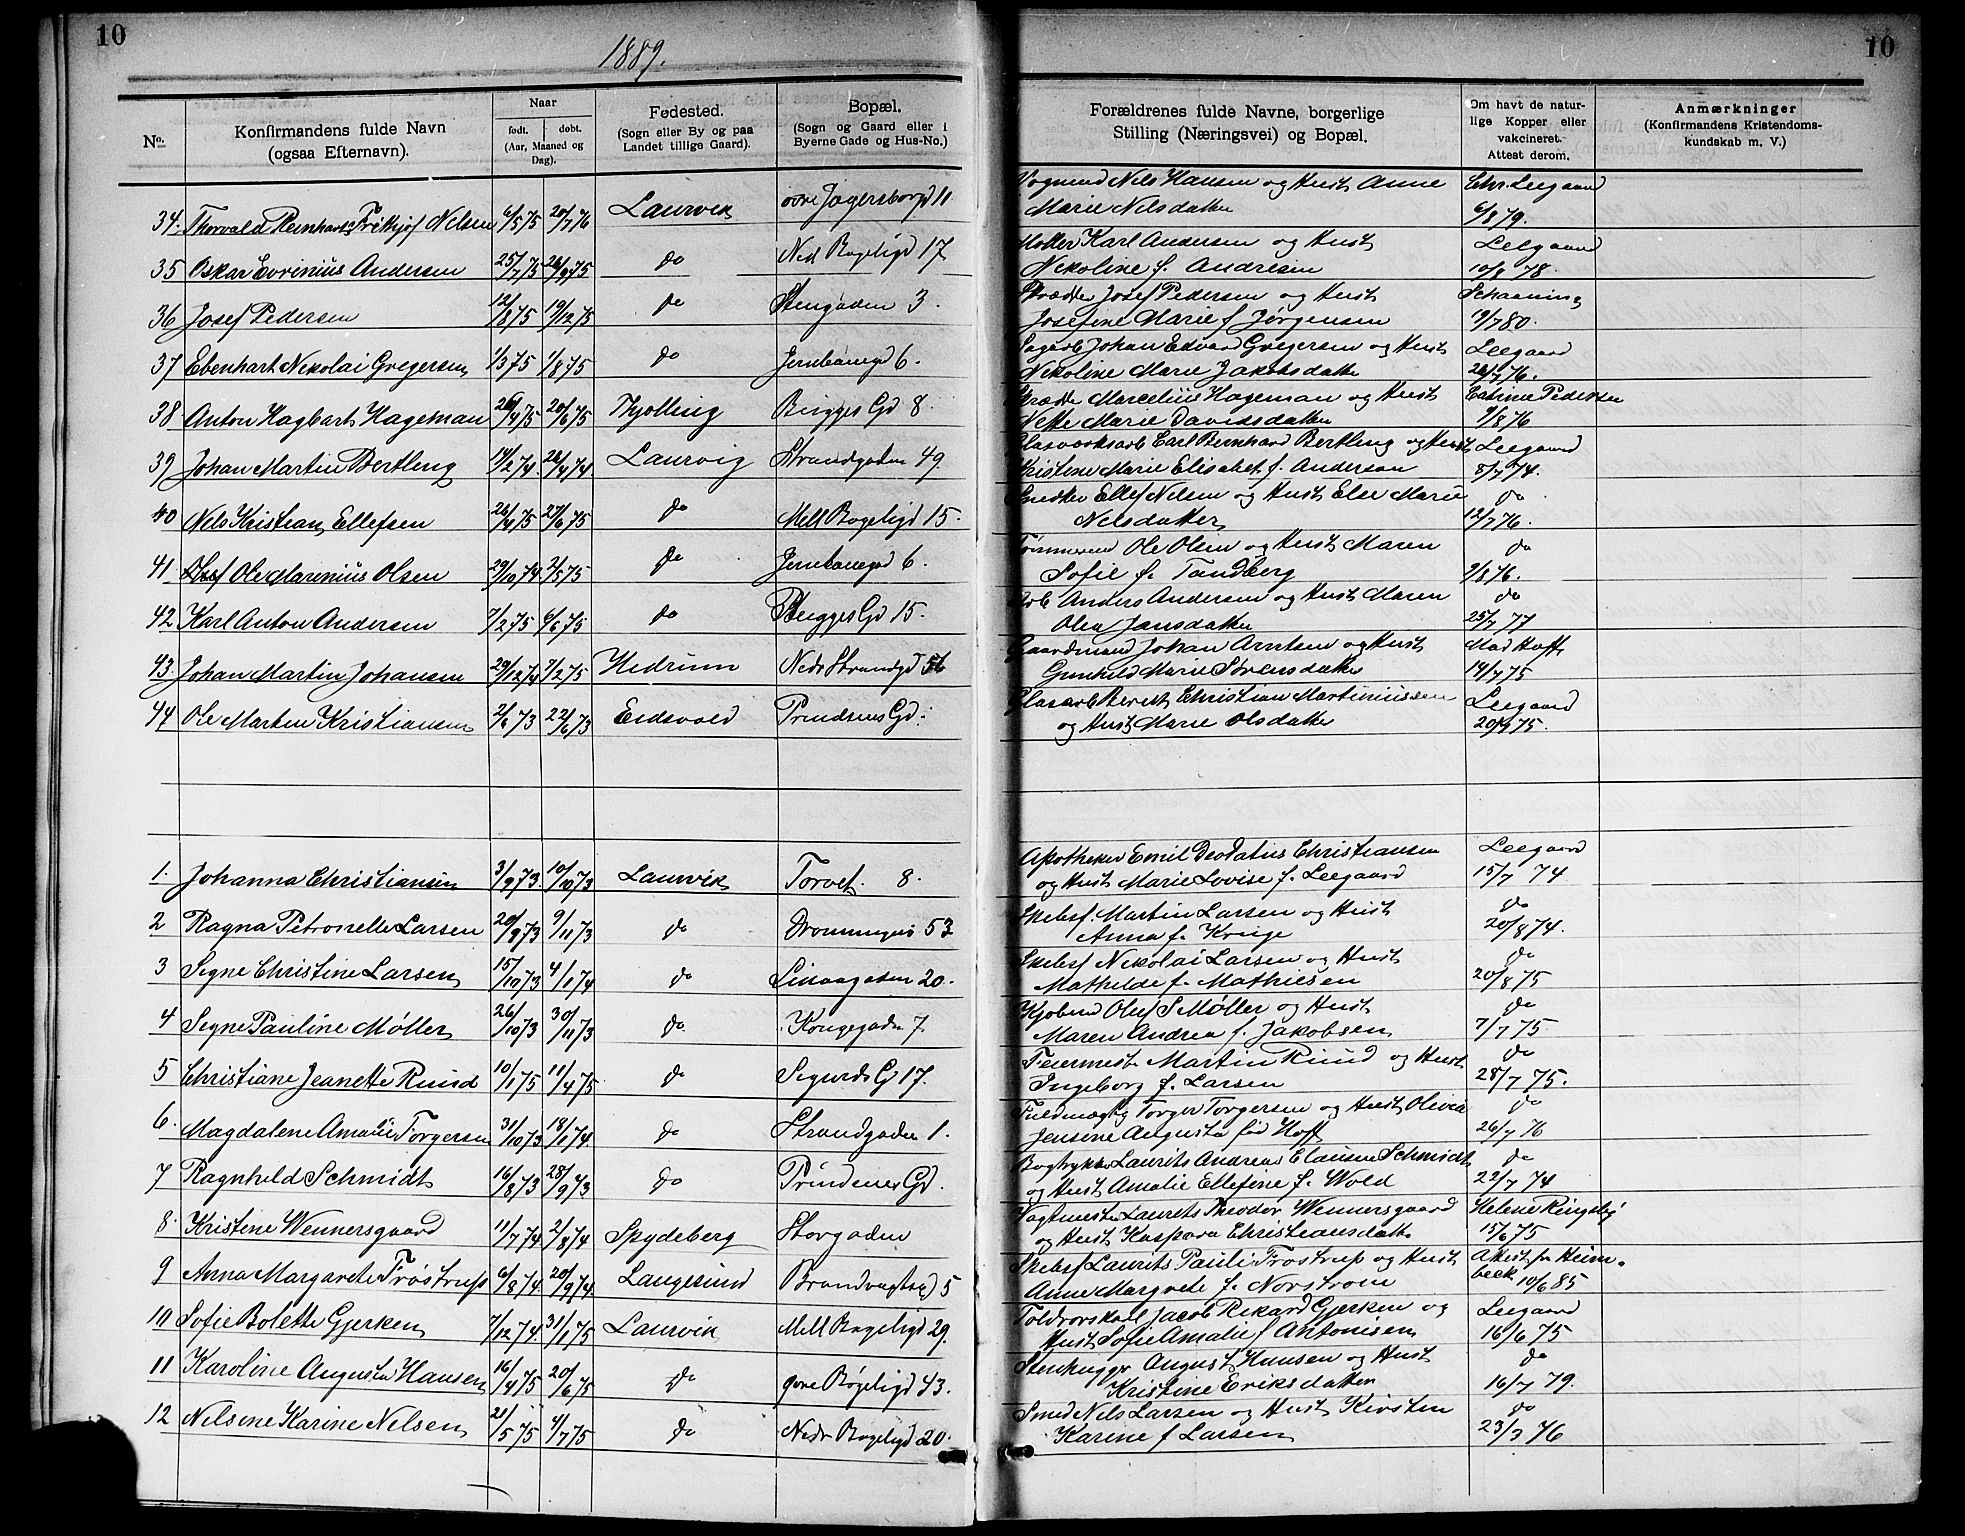 10
10
1889.
No.
Konfirmandens fulde Navn
(ogsaa Efternavn).
Naar
født. døbt.
(Aar, Maaned og
Dag).
Fødested.
(Sogn eller By og paa
Landet tillige Gaard).
Bopæl.
(Sogn og Gaard eller i
Byerne Gade og Hus-No.)
Forældrenes fulde Navne, borgerlige
Stilling (Næringsvei) og Bopæl.
Om havt de natur-
lige Kopper eller
vakcineret.
Attest derom.
Anmærkninger
(Konfirmandens Kristendoms-
kundskab m. V.)
Vognmd Nels Hansen og Hust Anne Chr. Leegaard
34. Thorvald Reinhardt Frithjof Nelsen 6/5 75 20/7 76 Laurvik øvre Jegersborgd 11 Marie Nelsdatter 6/8 79.
Møller Karl Andersen og Hust Leegaard
35 Oskar Evrinius Andersen 25/7 75 26/9 75 do Ned Bøgeligd 17 Nekoline f. Andresen 10/8 78.
Skrædder Josef Pedersen og Hust Schaaning
36 Josef Pedersen 12/8 75 19/12 75 do Stengaden 3. Josefine Marie f Jørgensen 19/7 80.
Sagarb Johan Edvard Gregersen og Hust Leegaard
37 Ebenhart Nekolai Gregersen 1/3 75 1/8 75 do Jernbanegd 6. Nekoline Marie Jakobsdatter 26/7 76.
Skrædder Marcelius Hageman og Hust Catrine Pedersen
38 Anton Hagbart Hageman 26/4 75 20/6 75 Thjolling Brigges Gd 8. Nette Marie Davidsdatter 9/8 76
Glasværksarb Carl Bernhard Bertling og Hust Leegaard
39 Johan Martin Bertling 14/2 74 26/4 74 Laurvig Strandgaden 49. Kristine Marie Elisabet f. Anderson 8/7 74.
Snedker Ellef Nelsen og Hust Else Marie do
40 Nels Kristian Ellefsen 26/4 75 27/6 75 do Mell Bøgeligd 15. Nelsdatter 12/7 76.
Tømmermd Ole Olsen og Hust Maren do
41 Ole Marenius Olsen 29/10 74 2/5 75 do Jernbanegd 6. Sofie f. Tandberg 9/8 76.
Arb Anders Andersen og Hust Maren do
42 Karl Anton Andersen 7/2 75 6/6 75 do Brigges Gd 15. Olea Jansdatter 25/7 77
Gaardmand Johan Arntsen og Hust Mad Hoff
43. Johan Martin Johansen 29/12 74 7/2 75 Hedrum Nedr Strandgd 56 Gunhild Marie Sørensdatter 14/7 75
Glasarb Christian Martinussen Leegaard
44 Ole Marten Kristiansen 2/6 73 22/6 73 Eidsvold Prindsens Gd. og Hust Marie Olsdatter 20/9 75.
Apotheker Emil Deodatus Christiansen Leegaard
1. Johanna Christiansen 3/9 73 10/10 73 Laurvik Torvet 8. og Hust Marie Lovise f. Leegaard 15/7 74
Skibsf. Martin Larsen og Hust do
2 Ragna Petronelle Larsen 20/9 73 9/11 73 do Dronningens 53 Anna f. Krüge 20/8 74.
Skibsf Nekolai Larsen og Hust do
3 Segne Christine Larsen 15/10 73 4/1 74 do 20. Mathilde f. Mathiesen 20/8 75
Kjøbmd Oluf S Møller og Hust do
4 Segne Pauline Møller 26/10 73 30/11 73 do Kongegaden 7 Maren Andrea f. Jakobsen 7/7 75
Feiermest Martin Ruud og Hust do
5 Christiane Jeanette Ruud 10/1 75 11/4 75 do Segurds G 17. Ingeborg f. Larsen 28/7 75.
Fuldmægtig Torger Torgersen og Hust Olivia do
6. Magdalene Amalie Torgersen 31/10 73 18/1 74 do Strandgaden 1. Jensine Augusta fød Hoff 26/7 76
Bogtrykker Laurits Andreas Clausen Schmidt do
7 Ragnheld Schmidt 16/8 73 28/9 73 do Prindsens Gd. og Hust Amalie Ellefine f. Wold 22/7 74
Vagtmester Laurets Theodor Wennersgaard Helene Ringsby
8. Kristene Wennersgaard 11/7 74 2/8 74 Spydeberg Storgaden og Hust Kaspara Christiansdatter 15/6 75
Skibsf Laurits Pauli Frøstrup og Hust Attest fr Heim-
9 Anna Margarete Frøstrup 6/8 74 20/9 74 Langesund Brandvagtsgd 5 Anne Margrete f. Norstrøm beck 10/6 85
Toldrorskarl Jacob Rekard Gjerken og Leegaard
10 Sofie Bolette Gjerken 7/12 74. 31/1 75 Laurvik Mell Bøgeligd 29. Hust Sofie Amalie f Antonisen 16/6 75
Stenhugger August Hansen og Hust do
11 Karoline Augusta Hansen 16/4 75 20/6 75 do øvre Bøgeligd 43. Kristine Eriksdatter 16/7 79.
Smed Nels Larsen og Hust Kirsten do
12 Nelsine Karine Nelsen 21/5 75 4/7 75 do Nedr Bøgeligd 20. Karine f Larsen 23/3 76